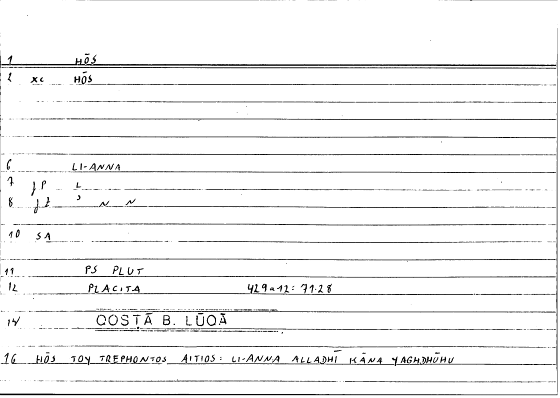 1 HŌS
2 xc HŌS
6 LI-ANNA
7 gP L
8 gZ ʾ N N
10 SA
11 PS PLUT
12 PLACITA 429a12: 71.28
14 QOSṬĀ B. LŪQĀ
16 HŌS TOY TREPHONTOS AITIOS: LI-ANNA ALLADHĪ KĀNA YAGHDHŪHU